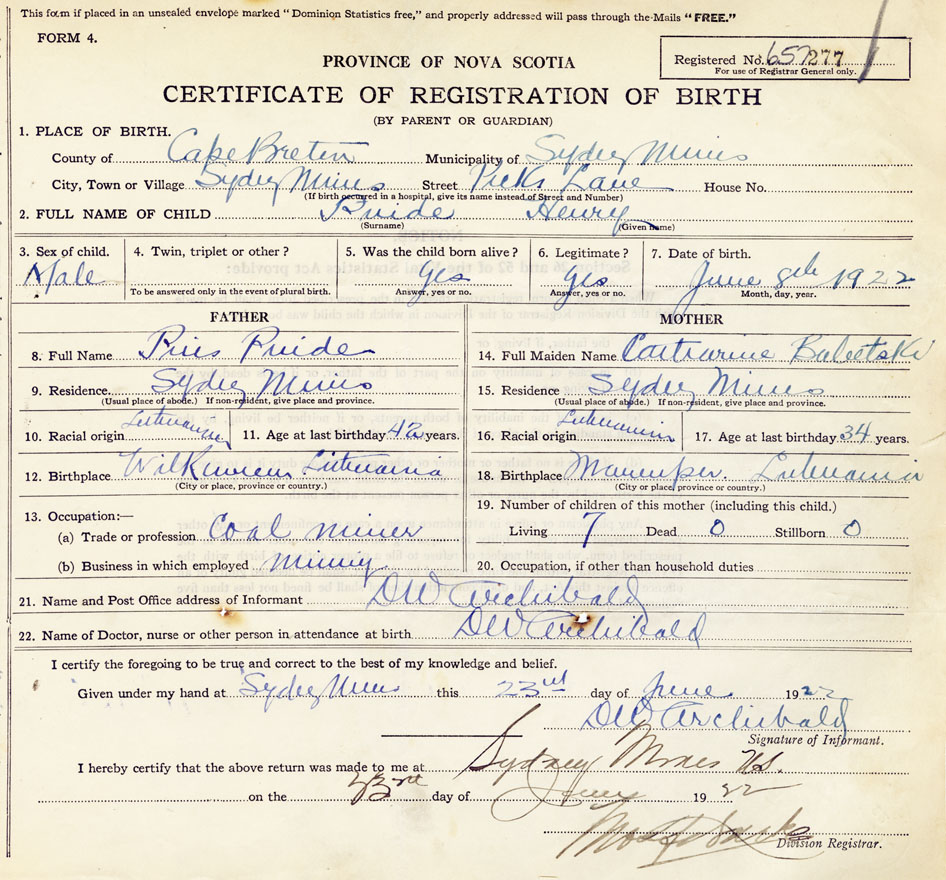 This form if placed in an unsealed envelope marked "Dominion Statistics free," and properly addressed will pass through the Mails "FREE."
FORM 4.
Registered No. 657277
For use of Registrar General only.
PROVINCE OF NOVA SCOTIA
CERTIFICATE OF REGISTRATION OF BIRTH
(BY PARENT OR GUARDIAN)
1. PLACE OF BIRTH.
County of Cape Breton Municipality of Sydney Mines
City, Town or Village Sydney Mines Street Lane House No.
(If birth occurred in a hospital, give its name instead of Street and Number)
2. FULL NAME OF CHILD Henry
(Surname) (Given name)
3. Sex of child. Male
4. Twin, triplet or other?
To be answered only in the event of plural birth.
5. Was the child born alive? Yes
Answer, yes or no.
6. Legitimate? Yes
Answer, yes or no.
7. Date of birth. June 8th 1922
Month, day, year.
FATHER
8. Full Name
9. Residence Sydney Mines
(Usual place of abode.) If non-resident, give place and province.
10. Racial origin 11. Age at last birthday 42 years.
12. Birthplace Lituania
(City or place, province or country.)
13. Occupation:—
(a) Trade or profession Coal miner
(b) Business in which employed mining
MOTHER
14. Full Maiden Name Catharine
15. Residence Sydney Mines
(Usual place of abode.) If non-resident, give place and province.
16. Racial origin 17. Age at last birthday 34 years.
18. Birthplace Lituania
(City or place, province or country.)
19. Number of children of this mother (including this child.)
Living 7 Dead 0 Stillborn 0
20. Occupation, if other than household duties
21. Name and Post Office address of Informant DW Archibald
22. Name of Doctor, nurse or other person in attendance at birth DW Archibald
I certify the foregoing to be true and correct to the best of my knowledge and belief.
Given under my hand at Sydney Mines this 23rd day of June 1922
DW Archibald
Signature of Informant.
I hereby certify that the above return was made to me at Sydney Mines N.S.
on the 23rd day of June 1922
Division Registrar.